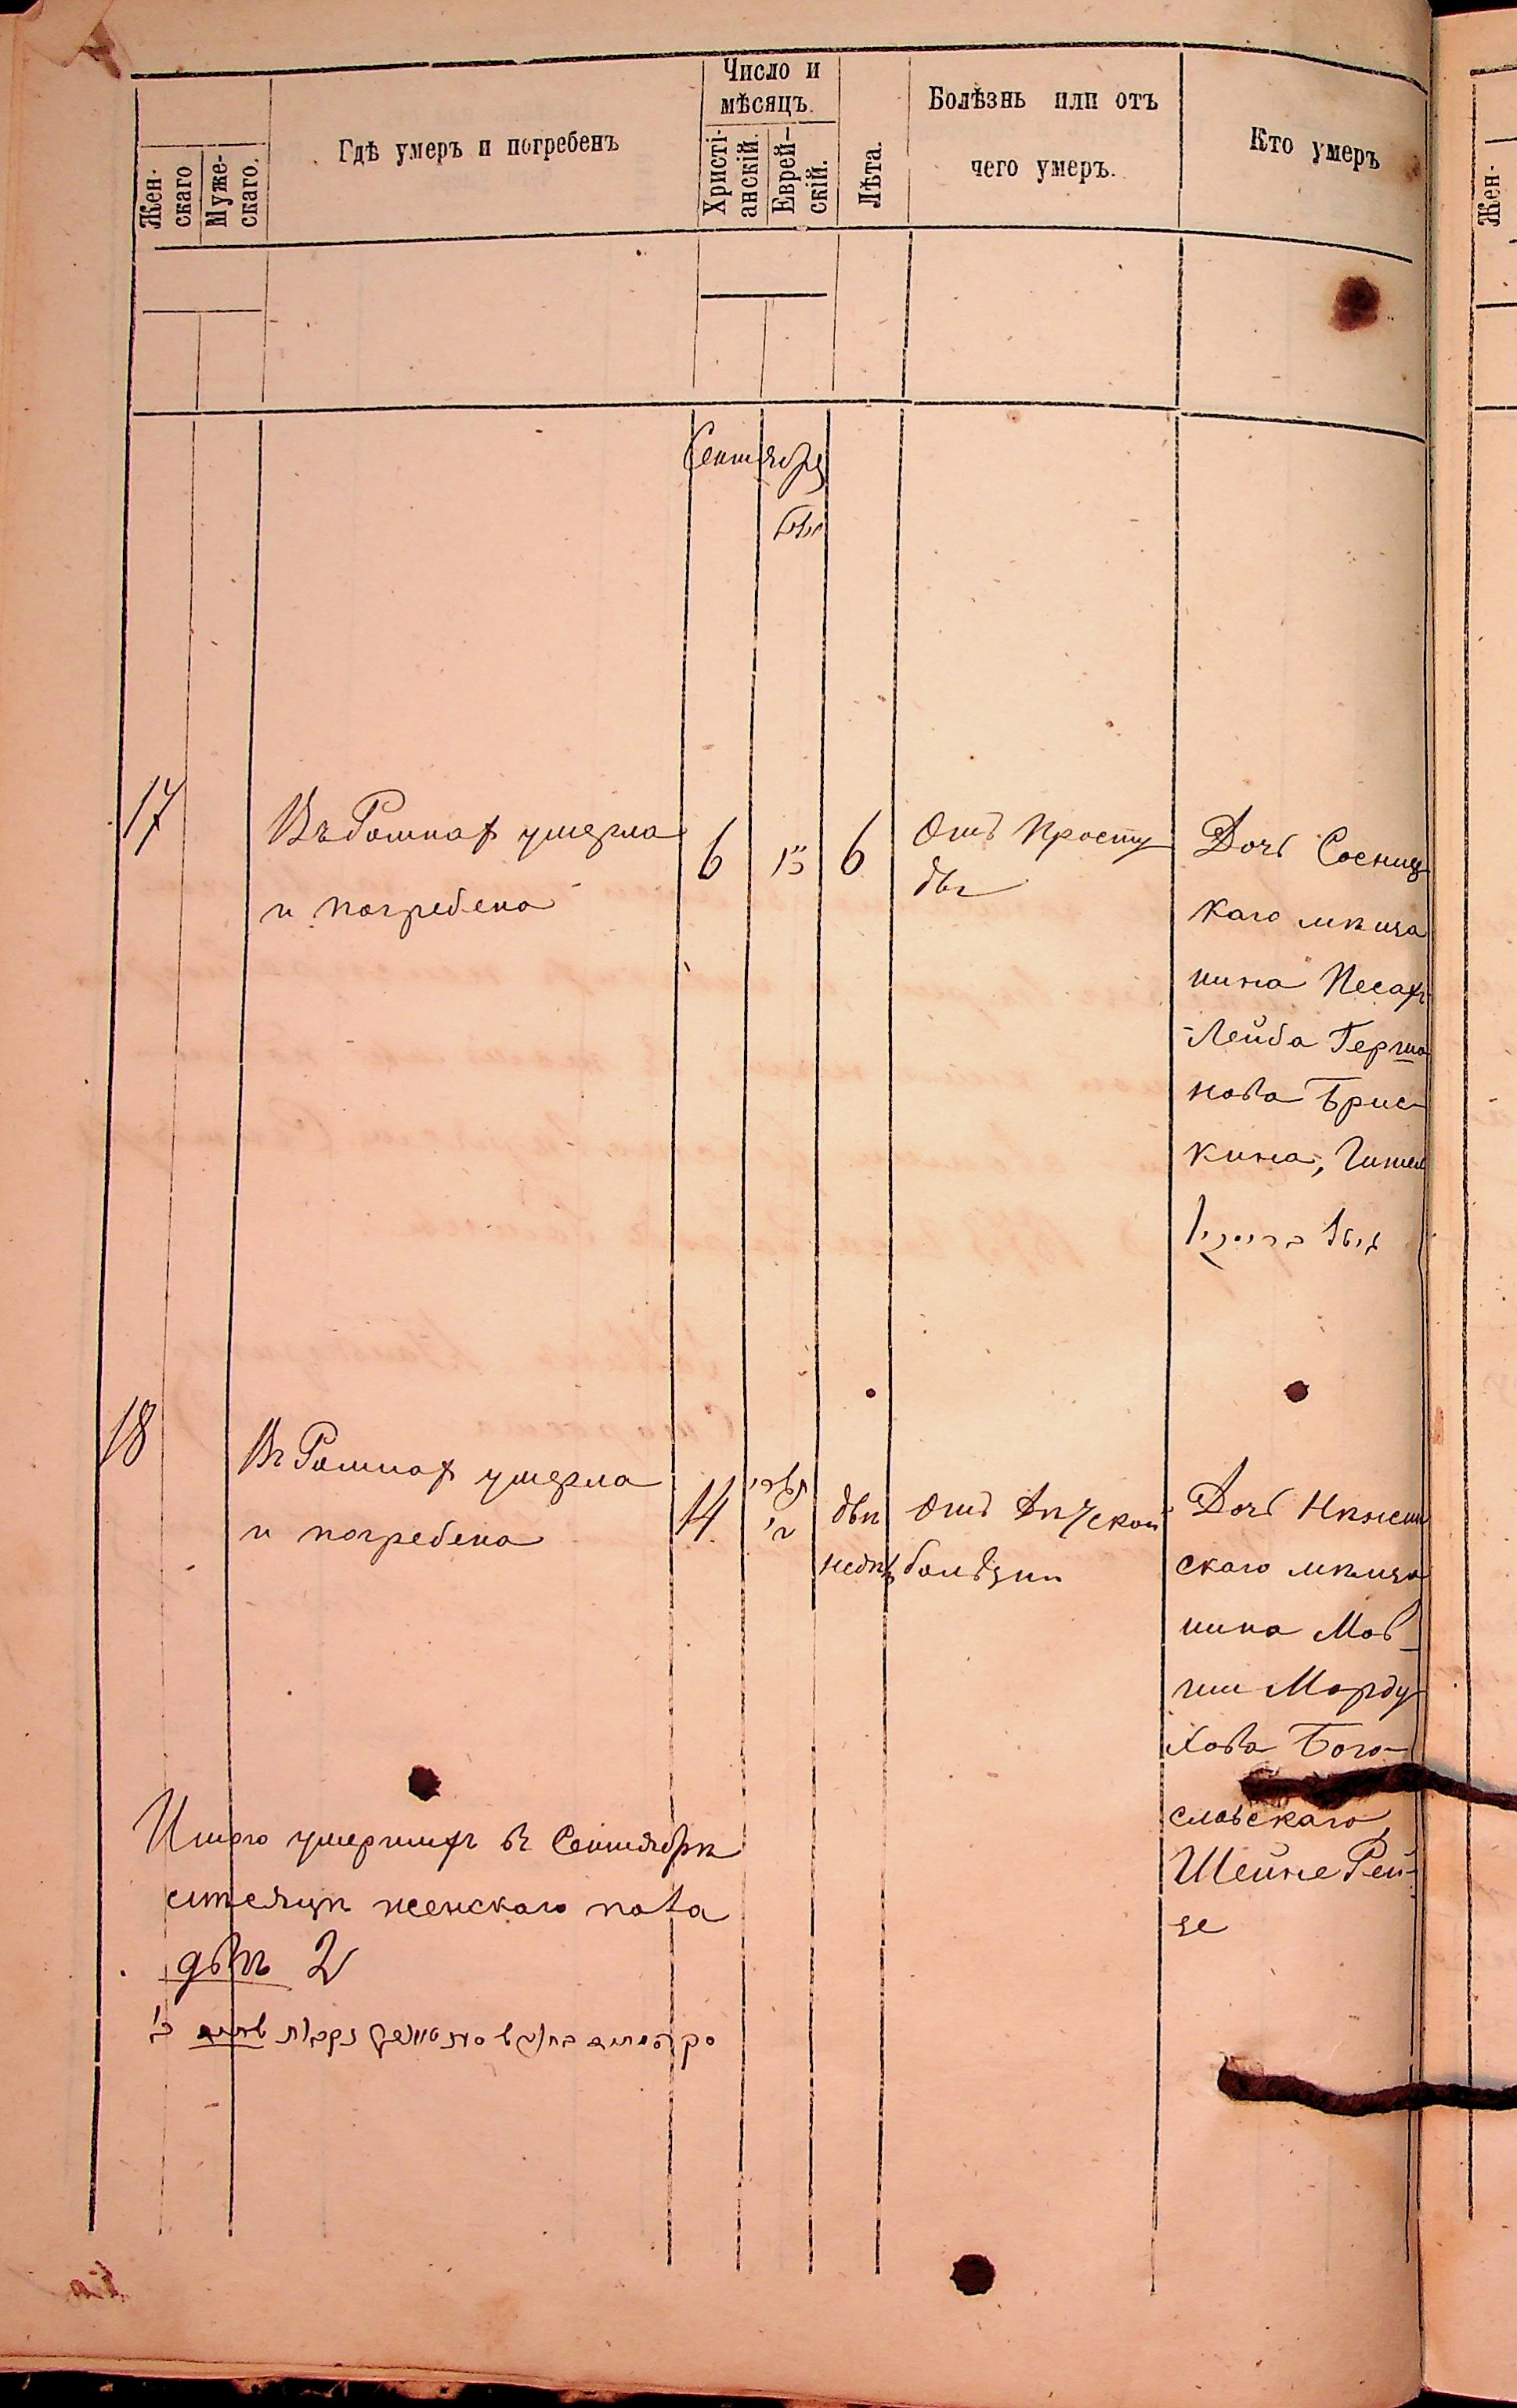 Жен-
скаго
Муже-
скаго.
Гдѣ умеръ и погребенъ
Число и
мѣсяцъ.
Христі-
анскій.
Еврей-
скій.
Лѣта.
Болѣзнь или отъ
чего умеръ.
Кто умеръ
Жен-
Сентября
אלול
17
Въ Ромнах умерла
и погребена
6
6
Отъ просту
ды
Дочь Сосниц
каго мѣща
нина Песах
Лейба Герша
нова Брис-
кина, Гитель
18
Въ Ромнах умерла
и погребена
14
двѣ
недѣ
Отъ дѣтской
болѣзни
Дочь Нѣжин
скаго мѣща
нина Мов-
ши Морду
хова Бого-
словскаго
Шейне Рей-
зе
Итого умершихъ въ Сентябрѣ
мѣсяцѣ женскаго пола
двѣ 2